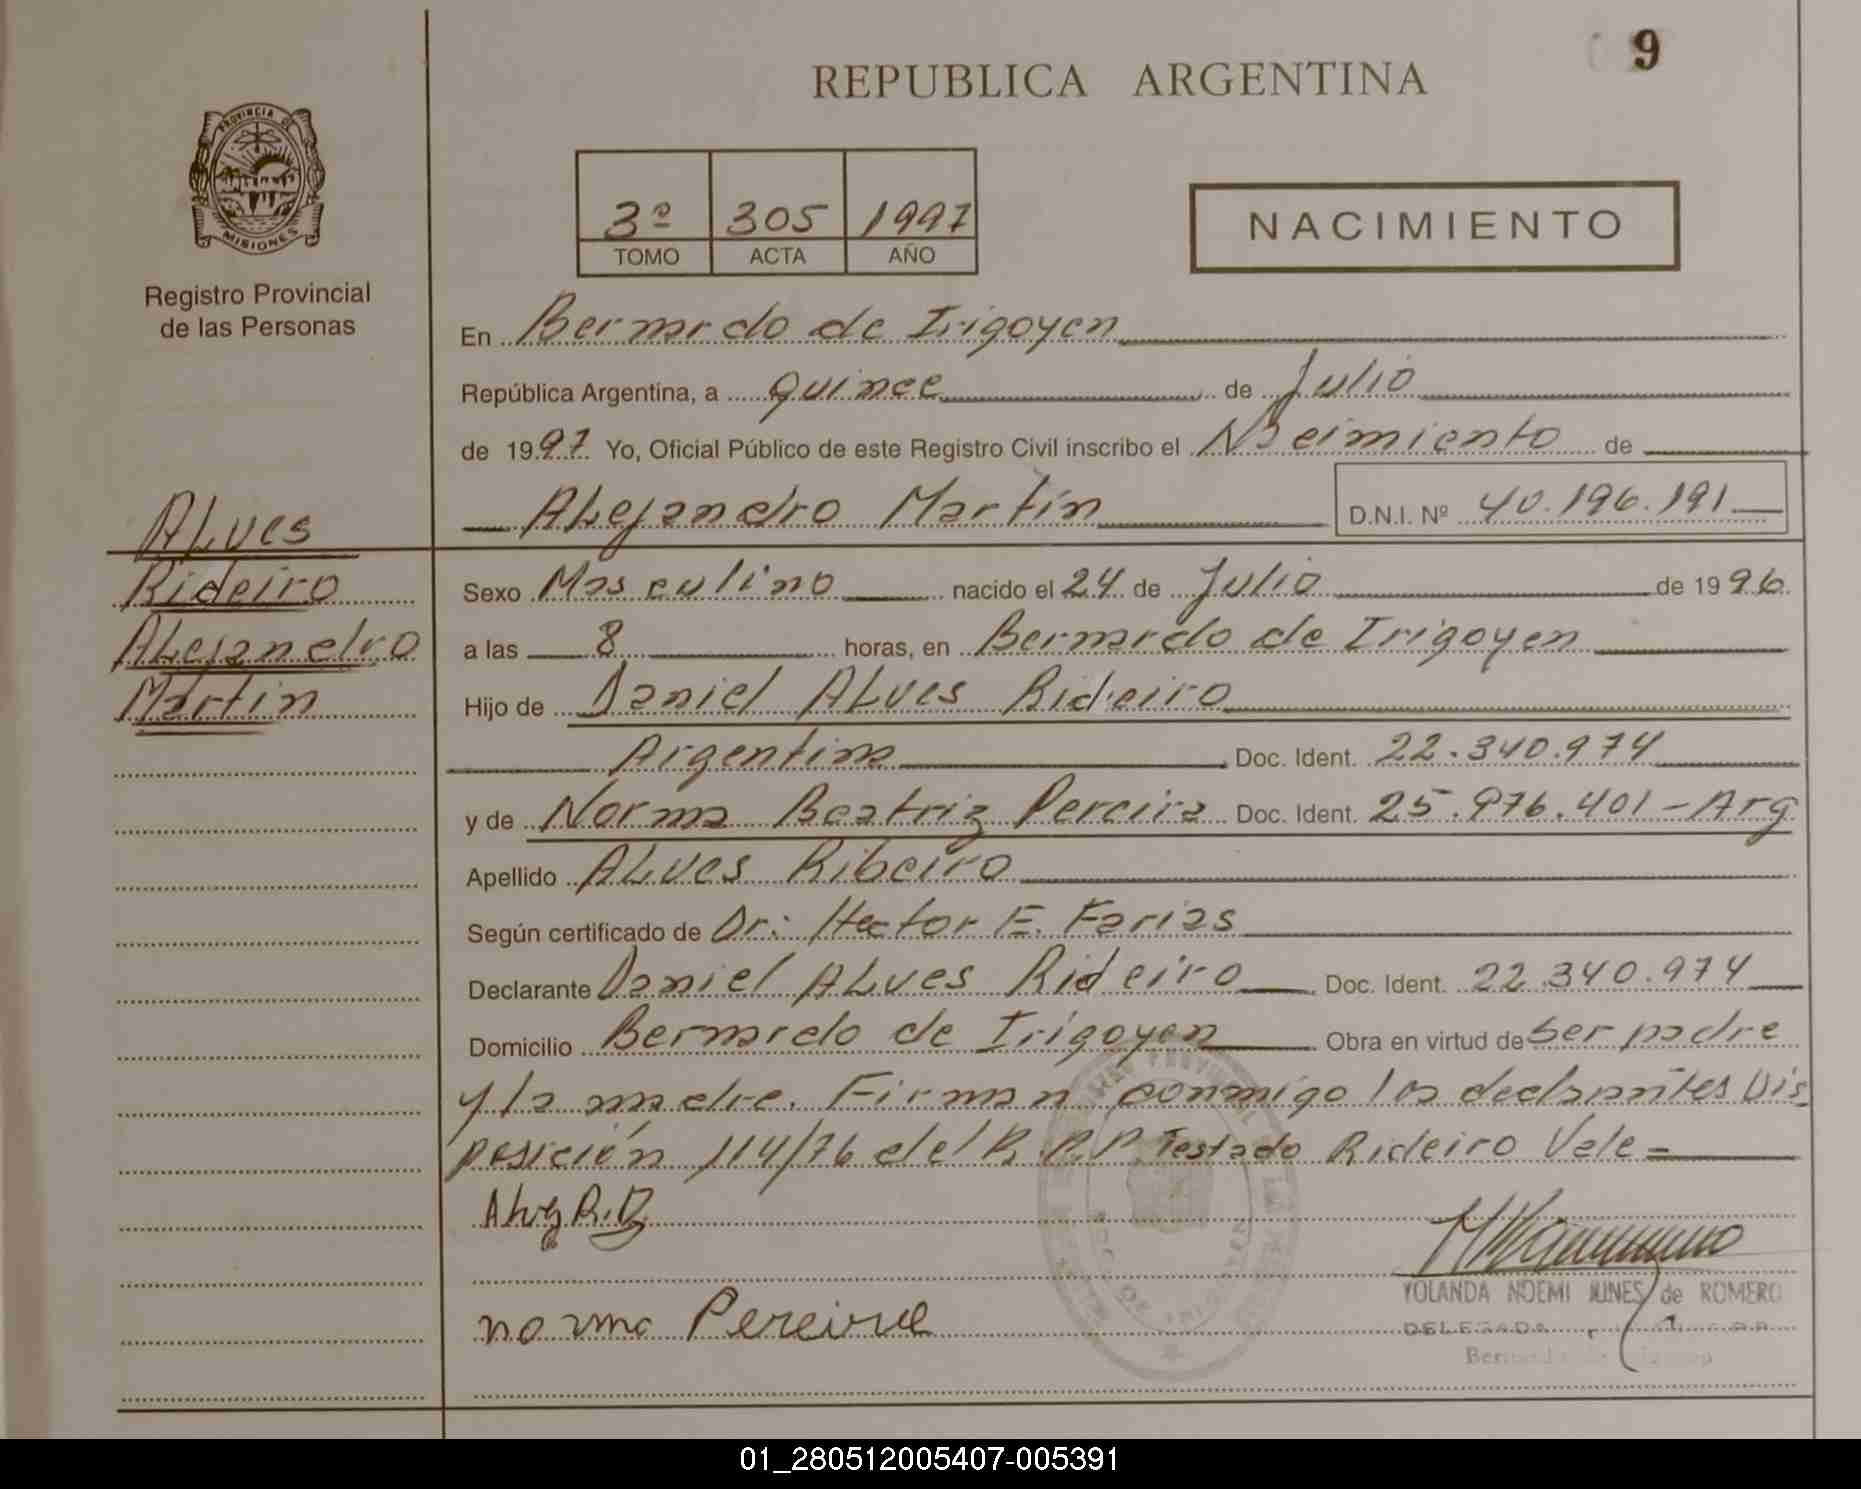 9
REPUBLICA ARGENTINA
PROVINCIA DE
MISIONES
Registro Provincial
de las Personas
3º 305 1997
TOMO ACTA AÑO
NACIMIENTO
En Bernardo de Irigoyen
República Argentina, a quince de Julio
de 1997 Yo, Oficial Público de este Registro Civil inscribo el Nacimiento de
Alejandro Martín D.N.I. Nº 40.196.191
Alves
Rideiro
Alejandro
Martín
Sexo Masculino nacido el 24 de Julio de 1996
a las 8 horas, en Bernardo de Irigoyen
Hijo de Daniel Alves Rideiro
Argentina Doc. Ident. 22.340.974
y de Norma Beatriz Pereira Doc. Ident. 25.976.401 - Arg
Apellido Alves Ribeiro
Según certificado de Dr: Hector E. Farias
Declarante Daniel Alves Rideiro Doc. Ident. 22.340.974
Domicilio Bernardo de Irigoyen Obra en virtud de Ser padre
y la madre. Firman conmigo los declarantes Dis
posición 114/76 del R.P.P Testado Rideiro Vale =
norma Pereira
YOLANDA NOEMI de ROMERO
DELEGADA
01_280512005407-005391